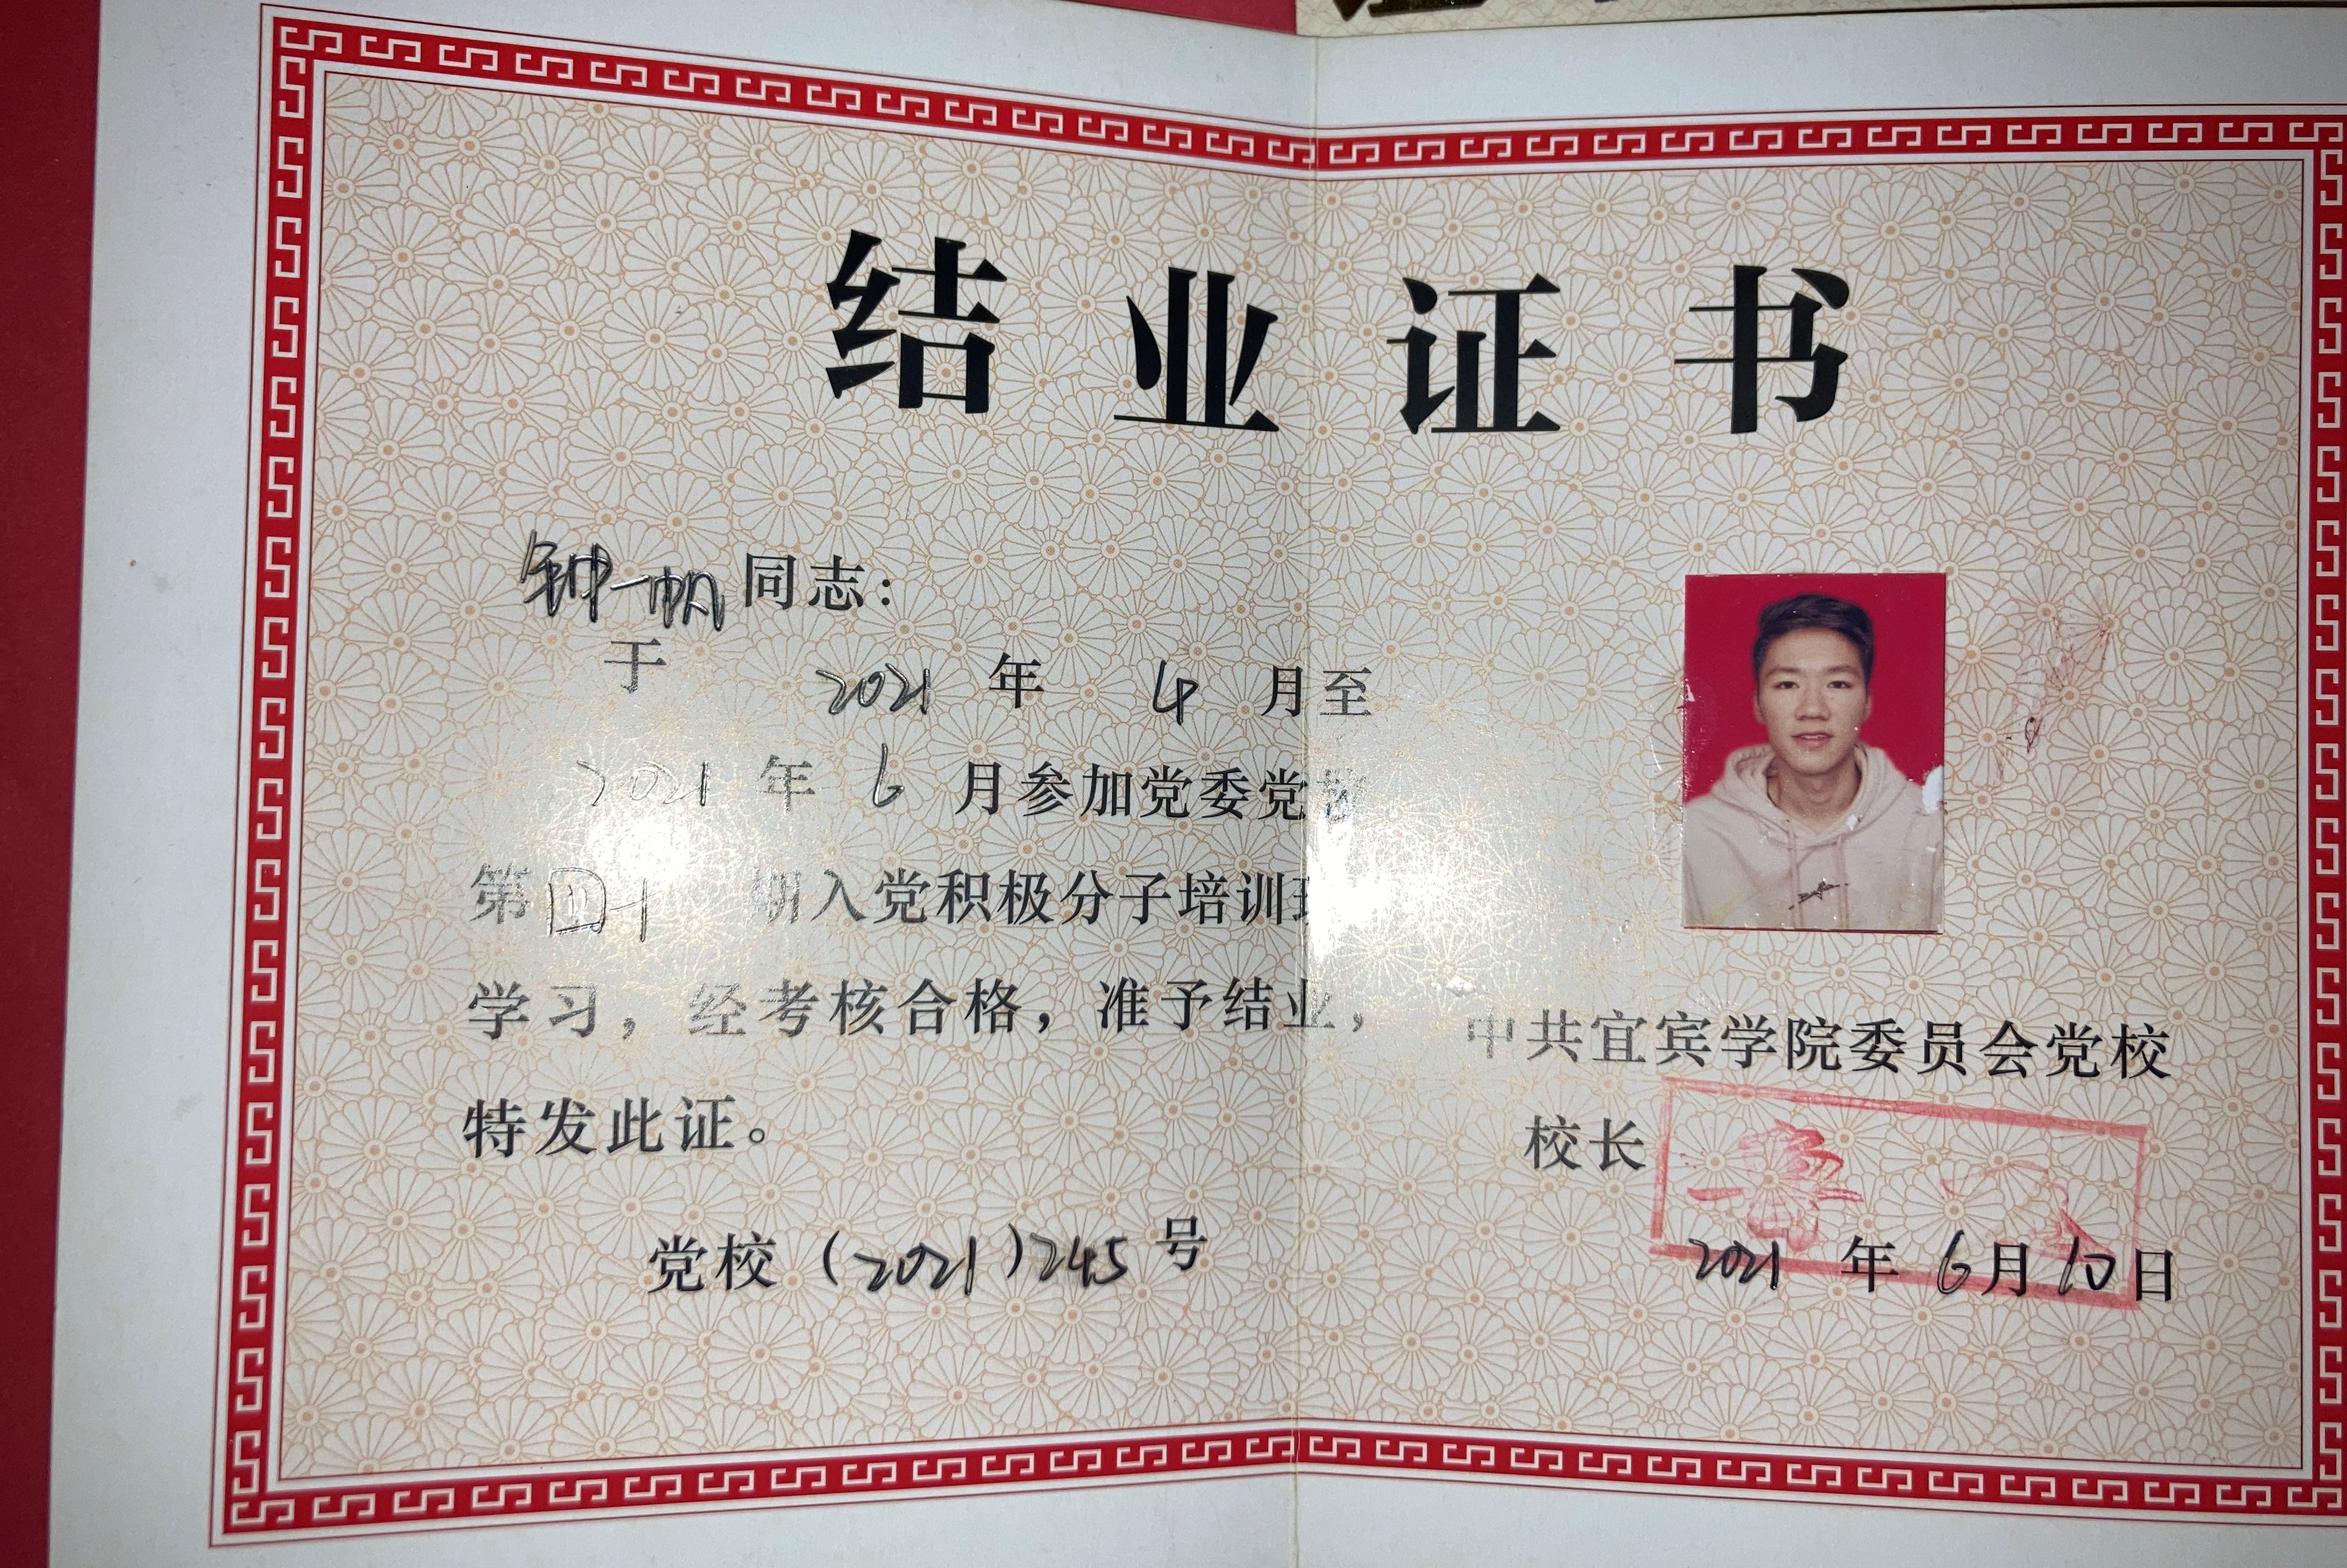 结业证书
钟一帆同志：
于 2021 年 4 月至
2021 年 6 月参加党委党校
第四十 期入党积极分子培训班
学习，经考核合格，准予结业，
特发此证。
党校（2021）245号
中共宜宾学院委员会党校
校长
2021 年 6月10日